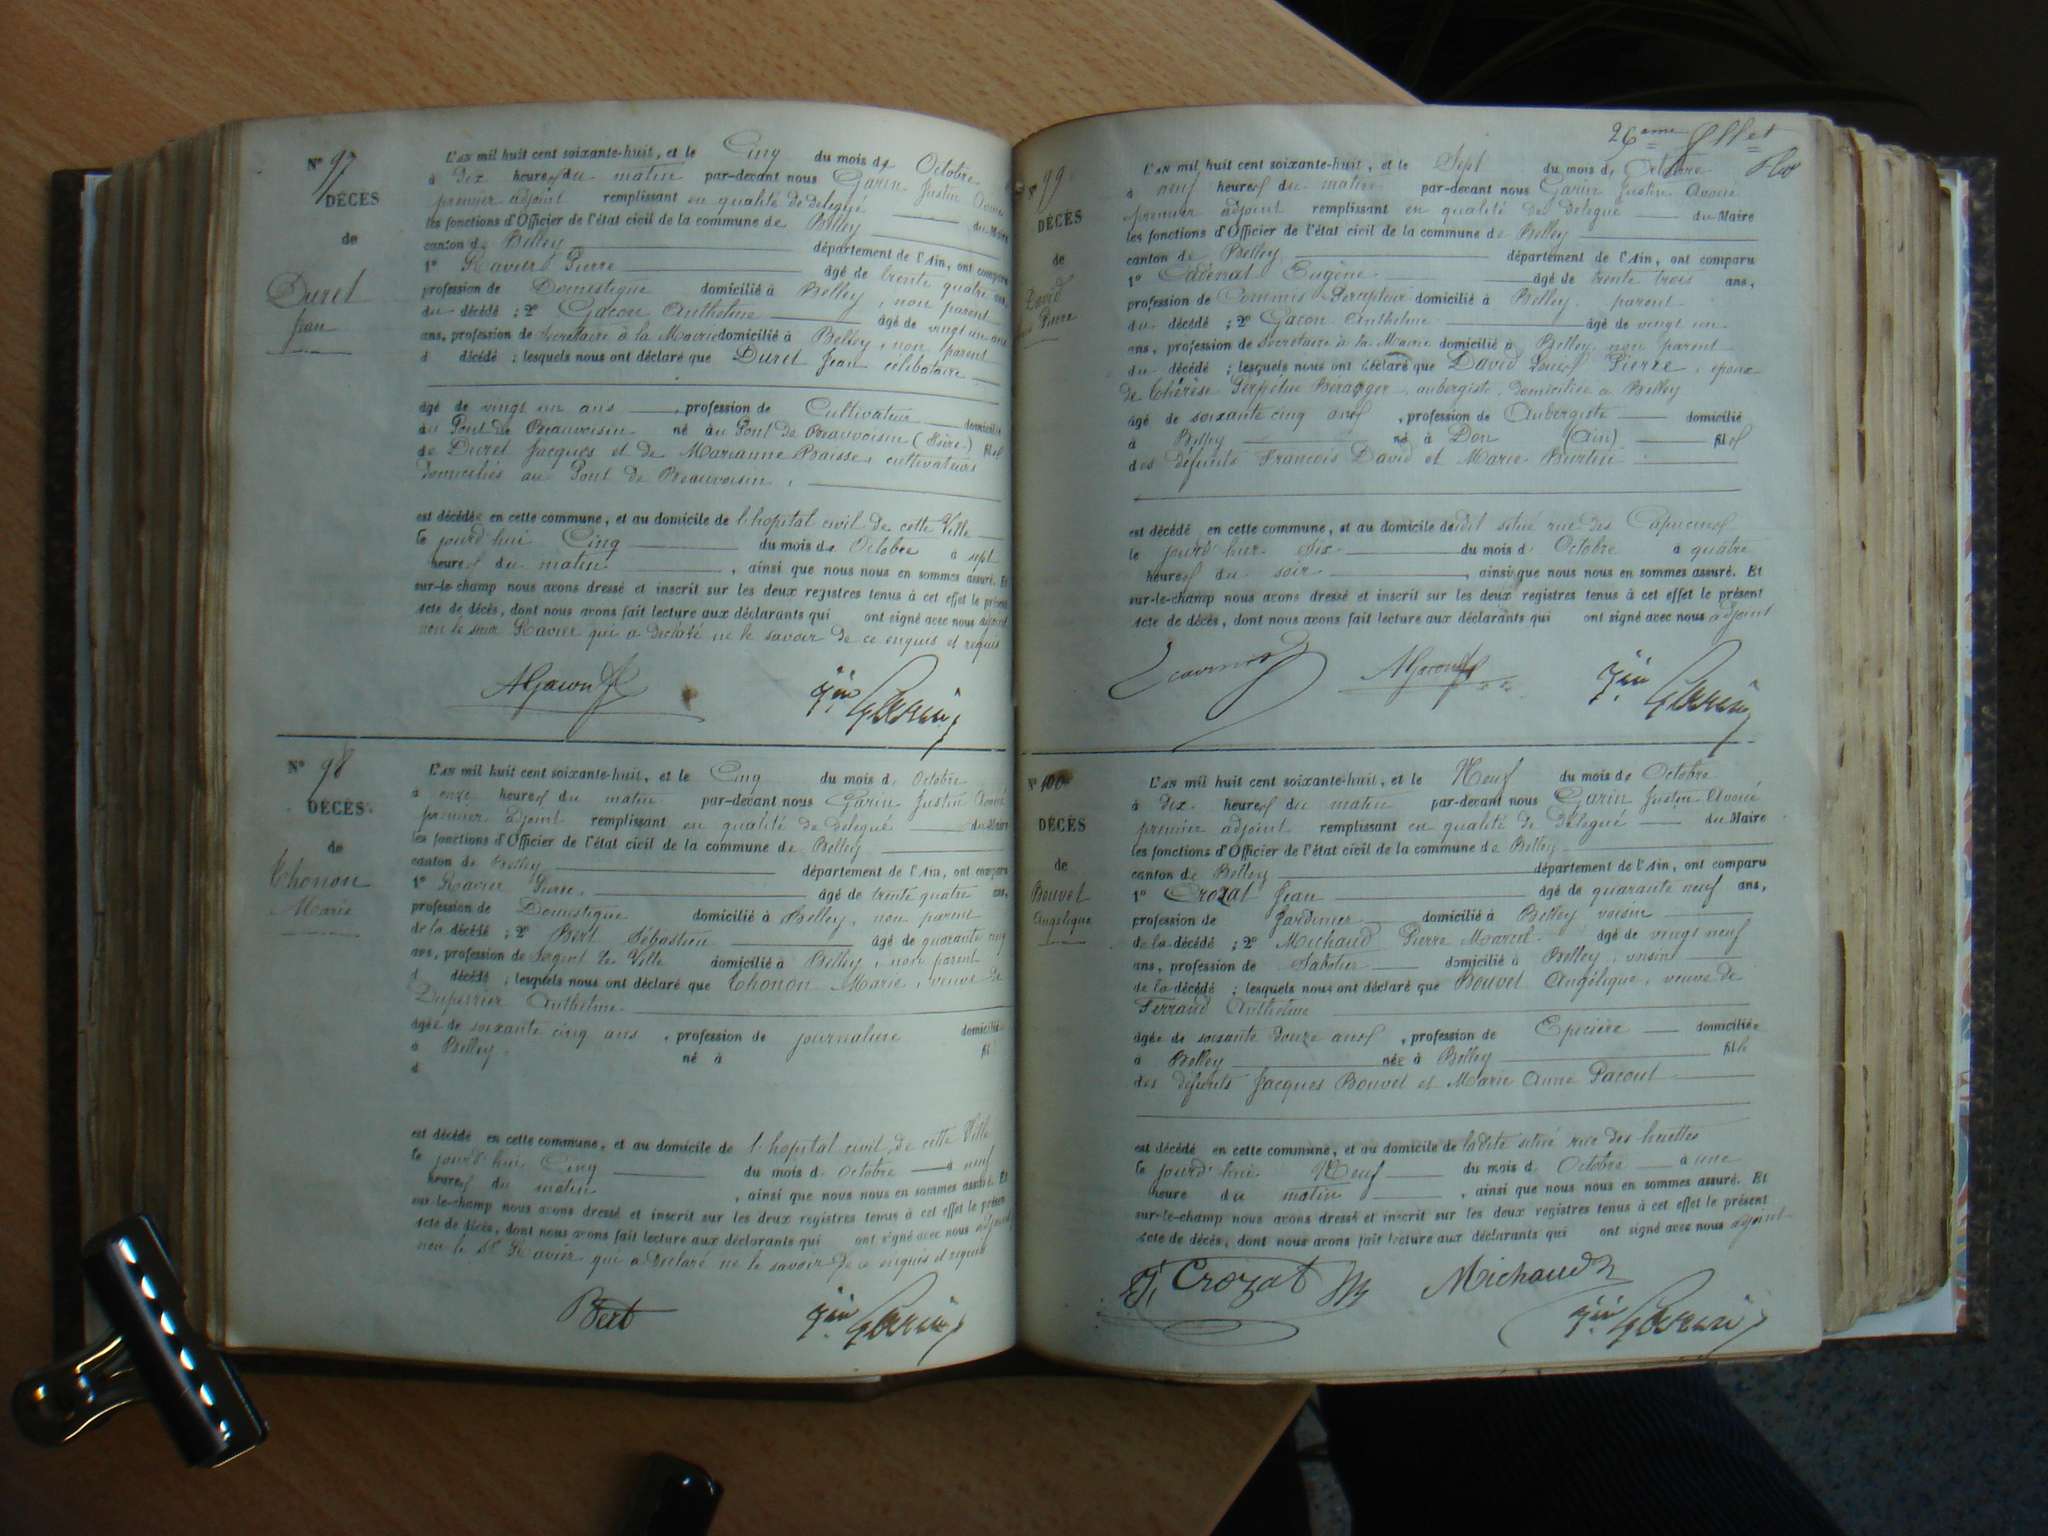 N° 97
DÉCÈS
de
Duret
Jean
L'AN mil huit cent soixante-huit, et le Cinq du mois de Octobre
à Dix heures du matin par-devant nous Garin Justin Avoué
premier adjoint remplissant en qualité de délégué du Maire
les fonctions d'Officier de l'état civil de la commune de Belley
canton de Belley département de l'Ain, ont comparu
1° Ravier Pierre âgé de trente quatre ans,
profession de Domestique domicilié à Belley, non parent
du décédé ; 2° Gacon Anthelme âgé de vingt un ans
ans, profession de Secrétaire à la Mairie domicilié à Belley, non parent
d décédé ; lesquels nous ont déclaré que Duret Jean célibataire
âgé de vingt un ans, profession de Cultivateur domicilié
au Pont de Beauvoisin né au Pont de Beauvoisin (Isère) fils
de Duret Jacques et de Marianne Baisse, cultivateurs
domiciliés au Pont de Beauvoisin,
est décédé en cette commune, et au domicile de l'hopital civil de cette Ville
le jourd'hui Cinq du mois de Octobre à sept
heures du matin, ainsi que nous nous en sommes assuré. Et
sur-le-champ nous avons dressé et inscrit sur les deux registres tenus à cet effet le présent
acte de décès, dont nous avons fait lecture aux déclarants qui ont signé avec nous adjoint
non le sieur Ravier qui a déclaré ne le savoir de ce enquis et requis
AGacon Jin Garin
N° 98
DÉCÈS
de
Thonon
Marie
L'AN mil huit cent soixante-huit, et le Cinq du mois d Octobre
à onze heures du matin par-devant nous Garin Justin Avoué
premier adjoint remplissant en qualité de délégué du Maire
les fonctions d'Officier de l'état civil de la commune de Belley
canton de Belley département de l'Ain, ont comparu
1° Ravier Pierre, âgé de trente quatre ans,
profession de Domestique domicilié à Belley, non parent
de la décédé ; 2° Bert Sébastien âgé de quarante cinq
ans, profession de Sergent de Ville domicilié à Belley, non parent
d décédé ; lesquels nous ont déclaré que Thonon Marie, veuve de
Duperrier Anthelme
âgée de soixante cinq ans, profession de journaliere domiciliée
à Belley. né à fil
d
est décédé en cette commune, et au domicile de l'hopital civil de cette Ville
le jourd'hui Cinq du mois d Octobre à neuf
heures du matin, ainsi que nous nous en sommes assuré. Et
sur-le-champ nous avons dressé et inscrit sur les deux registres tenus à cet effet le présent
acte de décès, dont nous avons fait lecture aux déclarants qui ont signé avec nous adjoint
non le Sr Ravier qui a déclaré ne le savoir de ce enquis et requis
Bert Jin Garin
26ème
N° 99
DÉCÈS
de
David
Pierre
L'AN mil huit cent soixante-huit, et le Sept du mois d Octobre
à neuf heures du matin par-devant nous Garin Justin Avoué
premier adjoint remplissant en qualité de délégué du Maire
les fonctions d'Officier de l'état civil de la commune de Belley
canton de Belley département de l'Ain, ont comparu
1° Eugène âgé de trente trois ans,
profession de Commis Percepteur domicilié à Belley, parent
du décédé ; 2° Gacon Anthelme âgé de vingt un
ans, profession de Secrétaire à la Mairie domicilié à Belley, non parent
du décédé ; lesquels nous ont déclaré que David Louis Pierre, époux
de Thérèse Perpétue Béranger, aubergiste, domiciliée à Belley
âgé de soixante cinq ans, profession de Aubergiste domicilié
à Belley né à Don (Ain) fils
des défunts François David et Marie Burtin
est décédé en cette commune, et au domicile dudit situé rue des Capucins
le jourd'hui Six du mois d Octobre à quatre
heures du soir, ainsi que nous nous en sommes assuré. Et
sur-le-champ nous avons dressé et inscrit sur les deux registres tenus à cet effet le présent
acte de décès, dont nous avons fait lecture aux déclarants qui ont signé avec nous adjoint
AGacon Jin Garin
N° 100
DÉCÈS
de
Bouvet
Angélique
L'AN mil huit cent soixante-huit, et le Neuf du mois de Octobre
à Dix heures du matin par-devant nous Garin Justin Avoué
premier adjoint remplissant en qualité de délégué du Maire
les fonctions d'Officier de l'état civil de la commune de Belley
canton de Belley département de l'Ain, ont comparu
1° Crozat Jean âgé de quarante neuf ans,
profession de Jardinier domicilié à Belley voisin
de la décédé ; 2° Michaud Pierre Marcel âgé de vingt neuf
ans, profession de Sabotier domicilié à Belley, voisin
de la décédé ; lesquels nous ont déclaré que Bouvet Angélique, veuve de
Ferrand Anthelme
âgée de soixante douze ans, profession de Epicière domiciliée
à Belley née à Belley fille
des défunts Jacques Bouvet et Marie Anne Pacout
est décédé en cette commune, et au domicile de ladite situé rue des
le jourd'hui Neuf du mois d Octobre à une
heure du matin, ainsi que nous nous en sommes assuré. Et
sur-le-champ nous avons dressé et inscrit sur les deux registres tenus à cet effet le présent
acte de décès, dont nous avons fait lecture aux déclarants qui ont signé avec nous adjoint
Crozat Michaud
Jin Garin